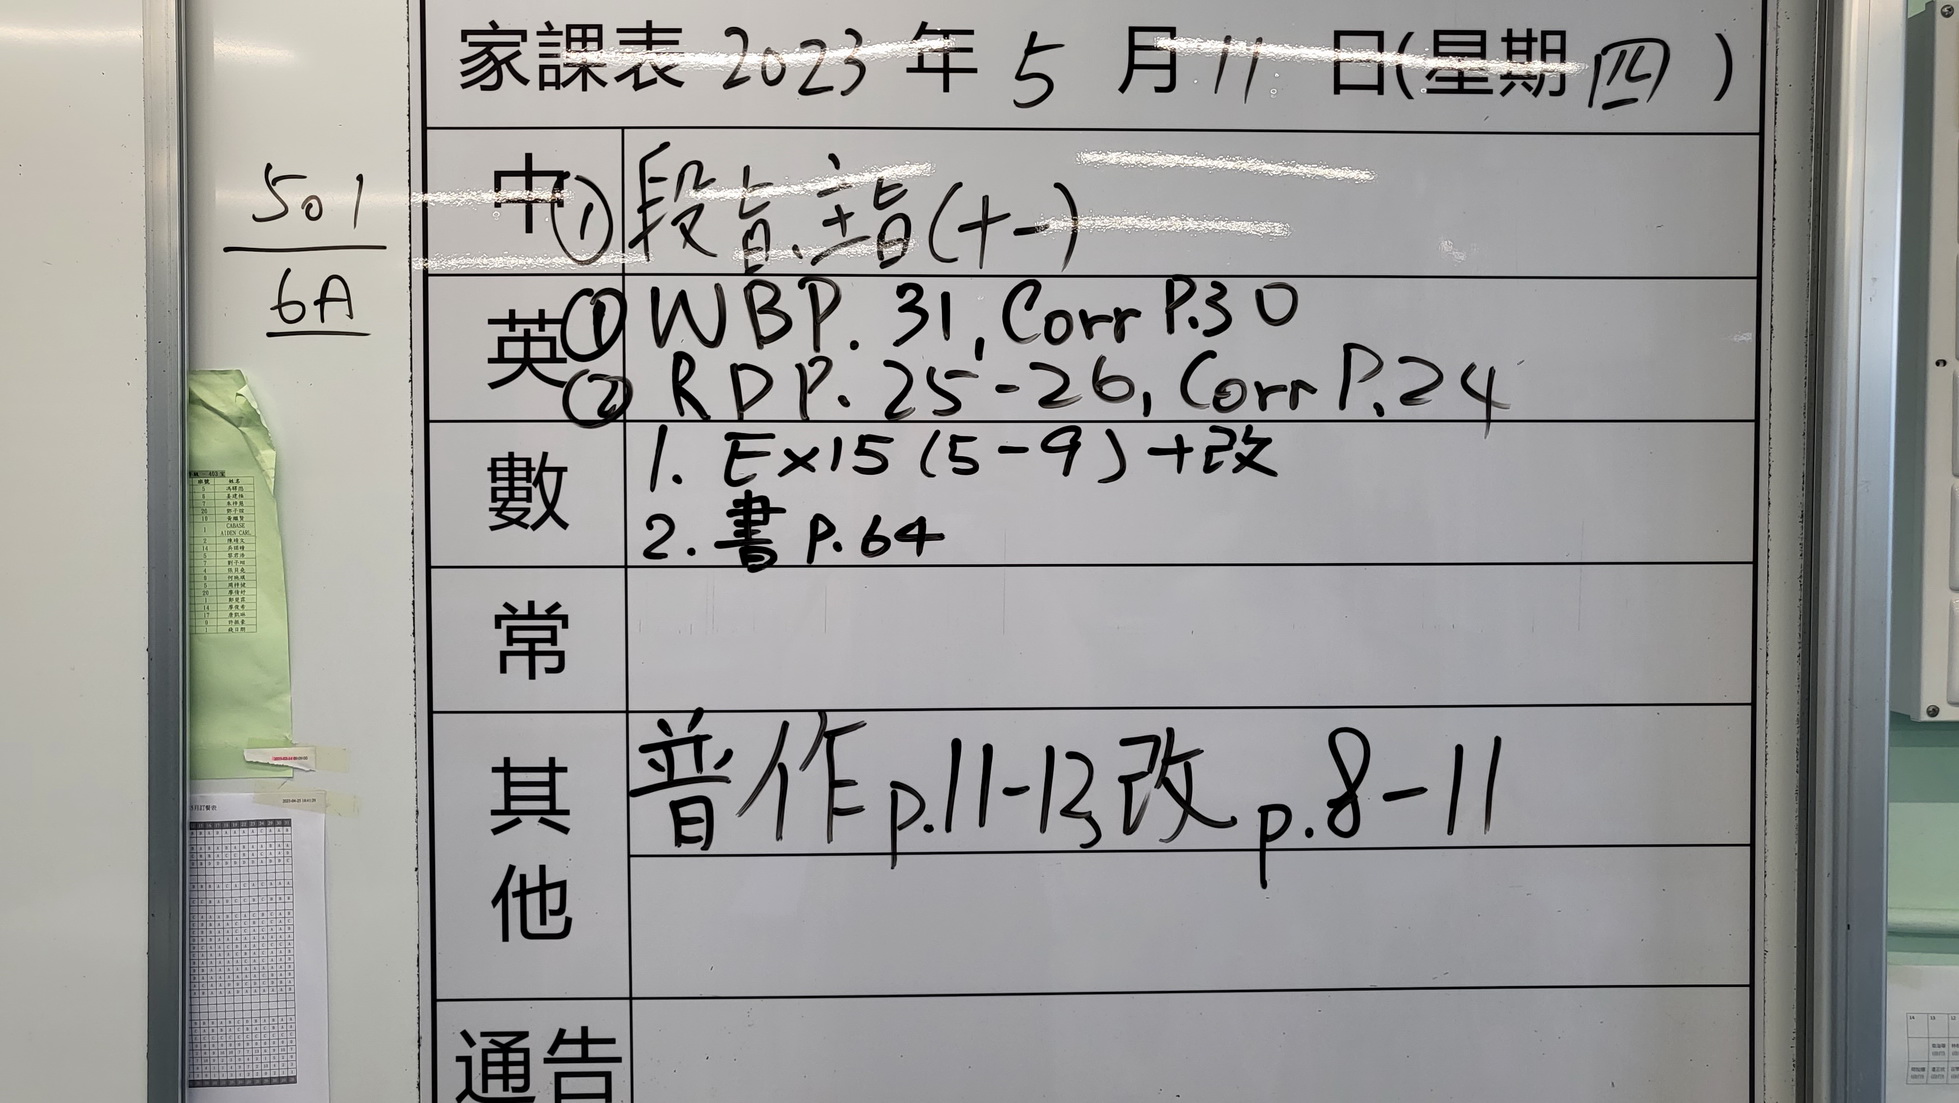 家課表 2023 年 5 月 11 日(星期四)
501
6A
中 ① 段旨、主旨(十一)
英 ① WB P. 31, Corr P.30
② RD P. 25-26, Corr P.24
數 1. Ex15 (5-9) +改
2. 書 P.64
常
其他 普作 p.11-13 改 p.8-11
通告